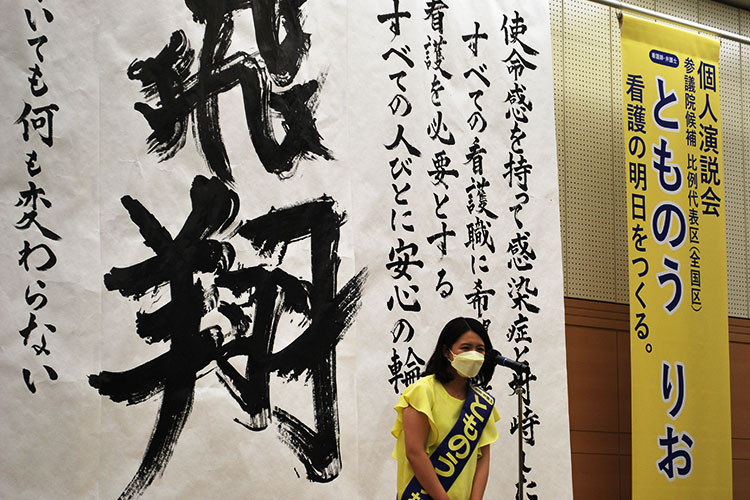 使命感を持って感染症と対峙した
すべての看護職に希望
看護を必要とする
すべての人びとに安心の輪
飛翔
いても何も変わらない
個人演説会
看護師・弁護士
参議院候補 比例代表区(全国区)
とものう りお
看護の明日をつくる。
とものう